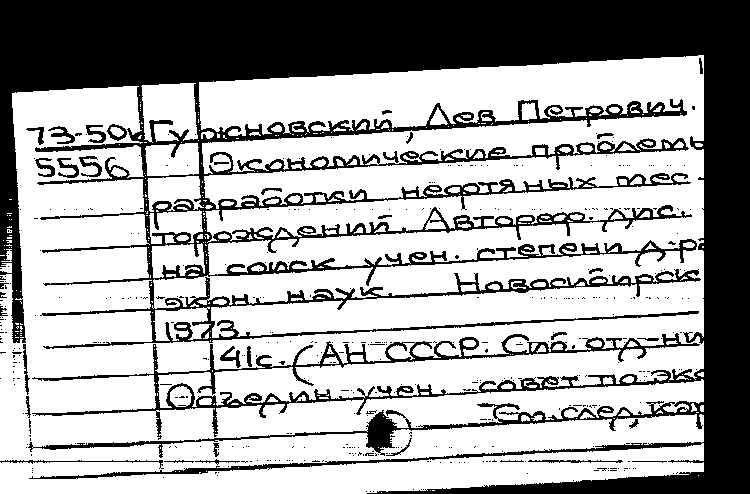 73-50к Гужновский, Лев Петрович.
5556 Экономические проблемы
разработки нефтяных мес-
торождений. Автореф. дис.
на соиск. учен. степени д-ра
экон. наук. Новосибирск
1973.
41с. (АН СССР. Сиб. отд-ни
Объедин. учен. совет по эко
См. след. кар